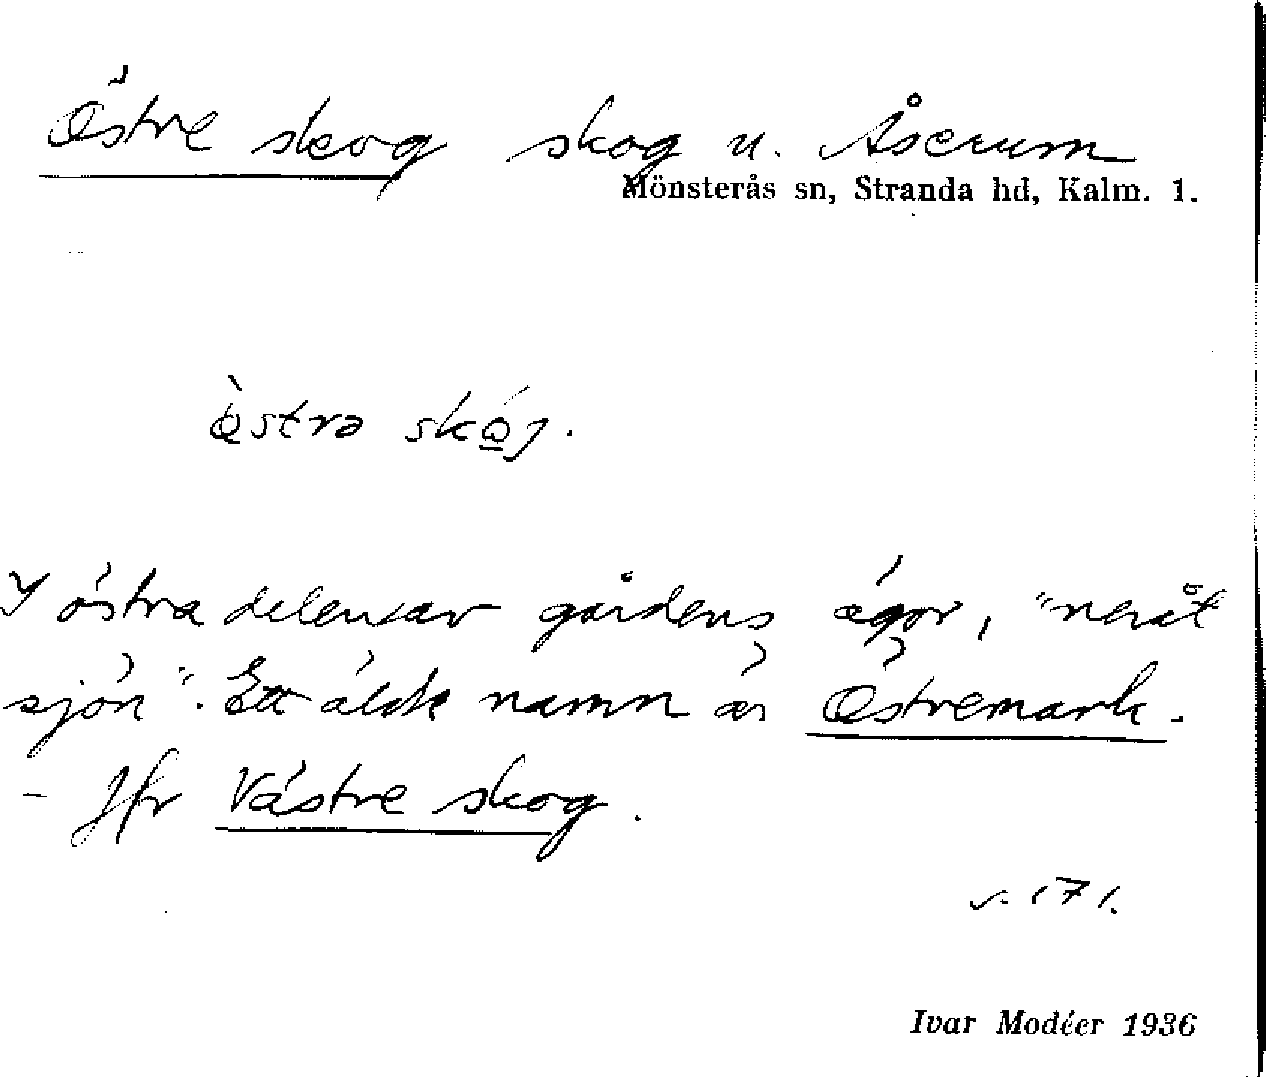 Östre skog skog u. Åserum
Mönsterås sn, Stranda hd, Kalm. l.
östrə skǫ́j.
I östra delen av gårdens ägor, "neråt
sjön". Ett äldre namn är Östremark.
- Jfr Västre skog.
s. 171.
Ivar Modéer 1936